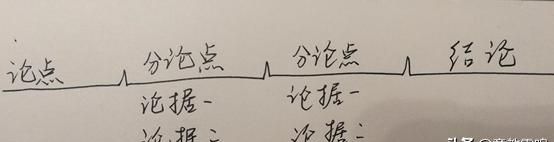 论点 分论点 分论点 结论
论据一 论据一
论据二 论据二